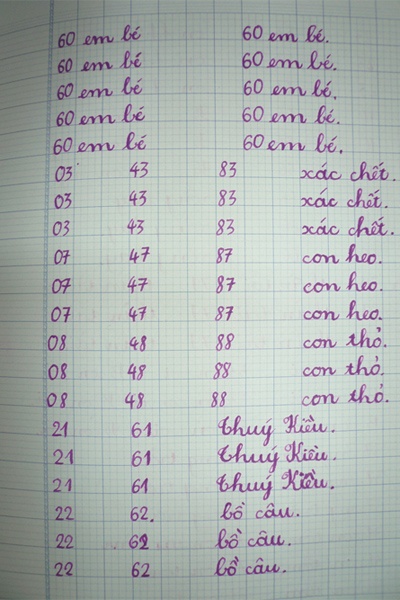 60 em bé 60 em bé.
60 em bé 60 em bé.
60 em bé 60 em bé.
60 em bé 60 em bé.
60 em bé 60 em bé.
03 43 83 xác chết.
03 43 83 xác chết.
03 43 83 xác chết.
07 47 87 con heo.
07 47 87 con heo.
07 47 87 con heo.
08 48 88 con thỏ.
08 48 88 con thỏ.
08 48 88 con thỏ.
21 61 Thuý Kiều.
21 61 Thuý Kiều.
21 61 Thuý Kiều.
22 62. bồ câu.
22 62 bồ câu.
22 62 bồ câu.